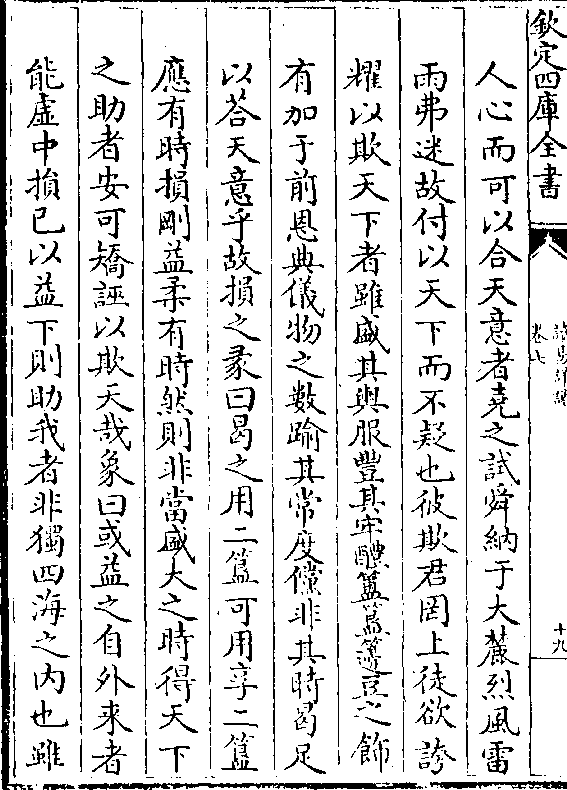 欽定四庫全書
讀易詳說
卷七
十九
人心而可以合天意者堯之試舜納于大麓烈風雷
雨弗迷故付以天下而不疑也彼欺君罔上徒欲誇
耀以欺天下者雖盛其輿服豐其牢醴簠簋籩豆之飾
有加于前恩典儀物之數踰其常度儻非其時曷足
以荅天意乎故損之彖曰曷之用二簋可用享二簋
應有時損剛益柔有時然則非當盛大之時得天下
之助者安可矯誣以欺天哉象曰或益之自外来者
能虛中損已以益下則助我者非獨四海之内也雖